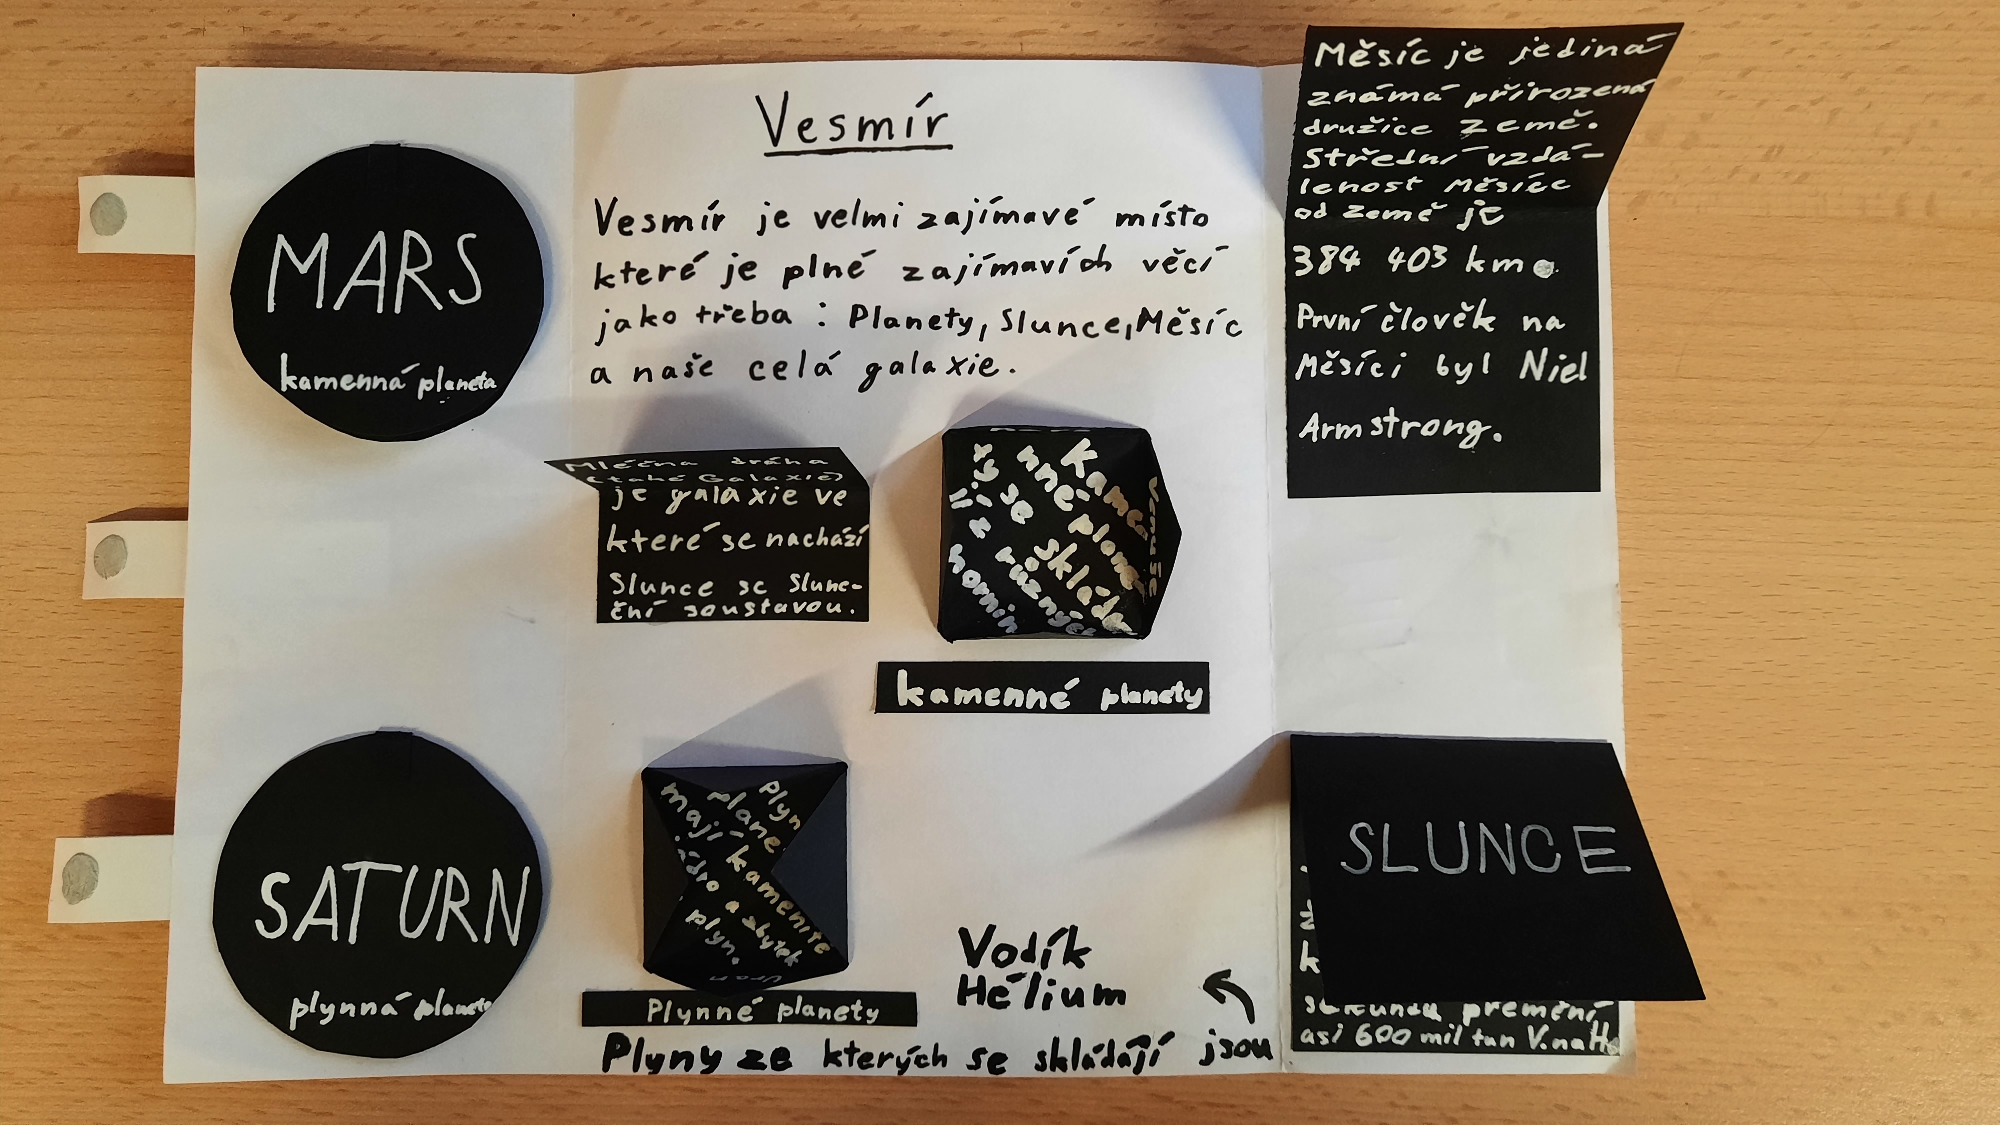 Vesmír
Vesmír je velmi zajímavé místo
které je plné zajímavích věcí
jako třeba : Planety, Slunce, Měsíc
a naše celá galaxie.
MARS
kamenná planeta
SATURN
plynná planeta
Mléčna dráha
(také Galaxie)
je galaxie ve
které se nachází
Slunce se Slunc-
ční soustavou.
Kamen
nné planet
xy se skládají
lí z různých
hornin
kamenné planety
Plyn
plane
mají kamenité
jádro a zbytek
plyn.
Uran
Plynné planety
Vodík
Hélium
Plyny ze kterých se skládají jsou
Měsíc je jediná
známá přirozená
družice Země.
Střední vzdá-
lenost Měsíce
od Země je
384 403 km.
První člověk na
Měsíci byl Niel
Armstrong.
SLUNCE
sekundu přemění
asi 600 mil tun V. na He